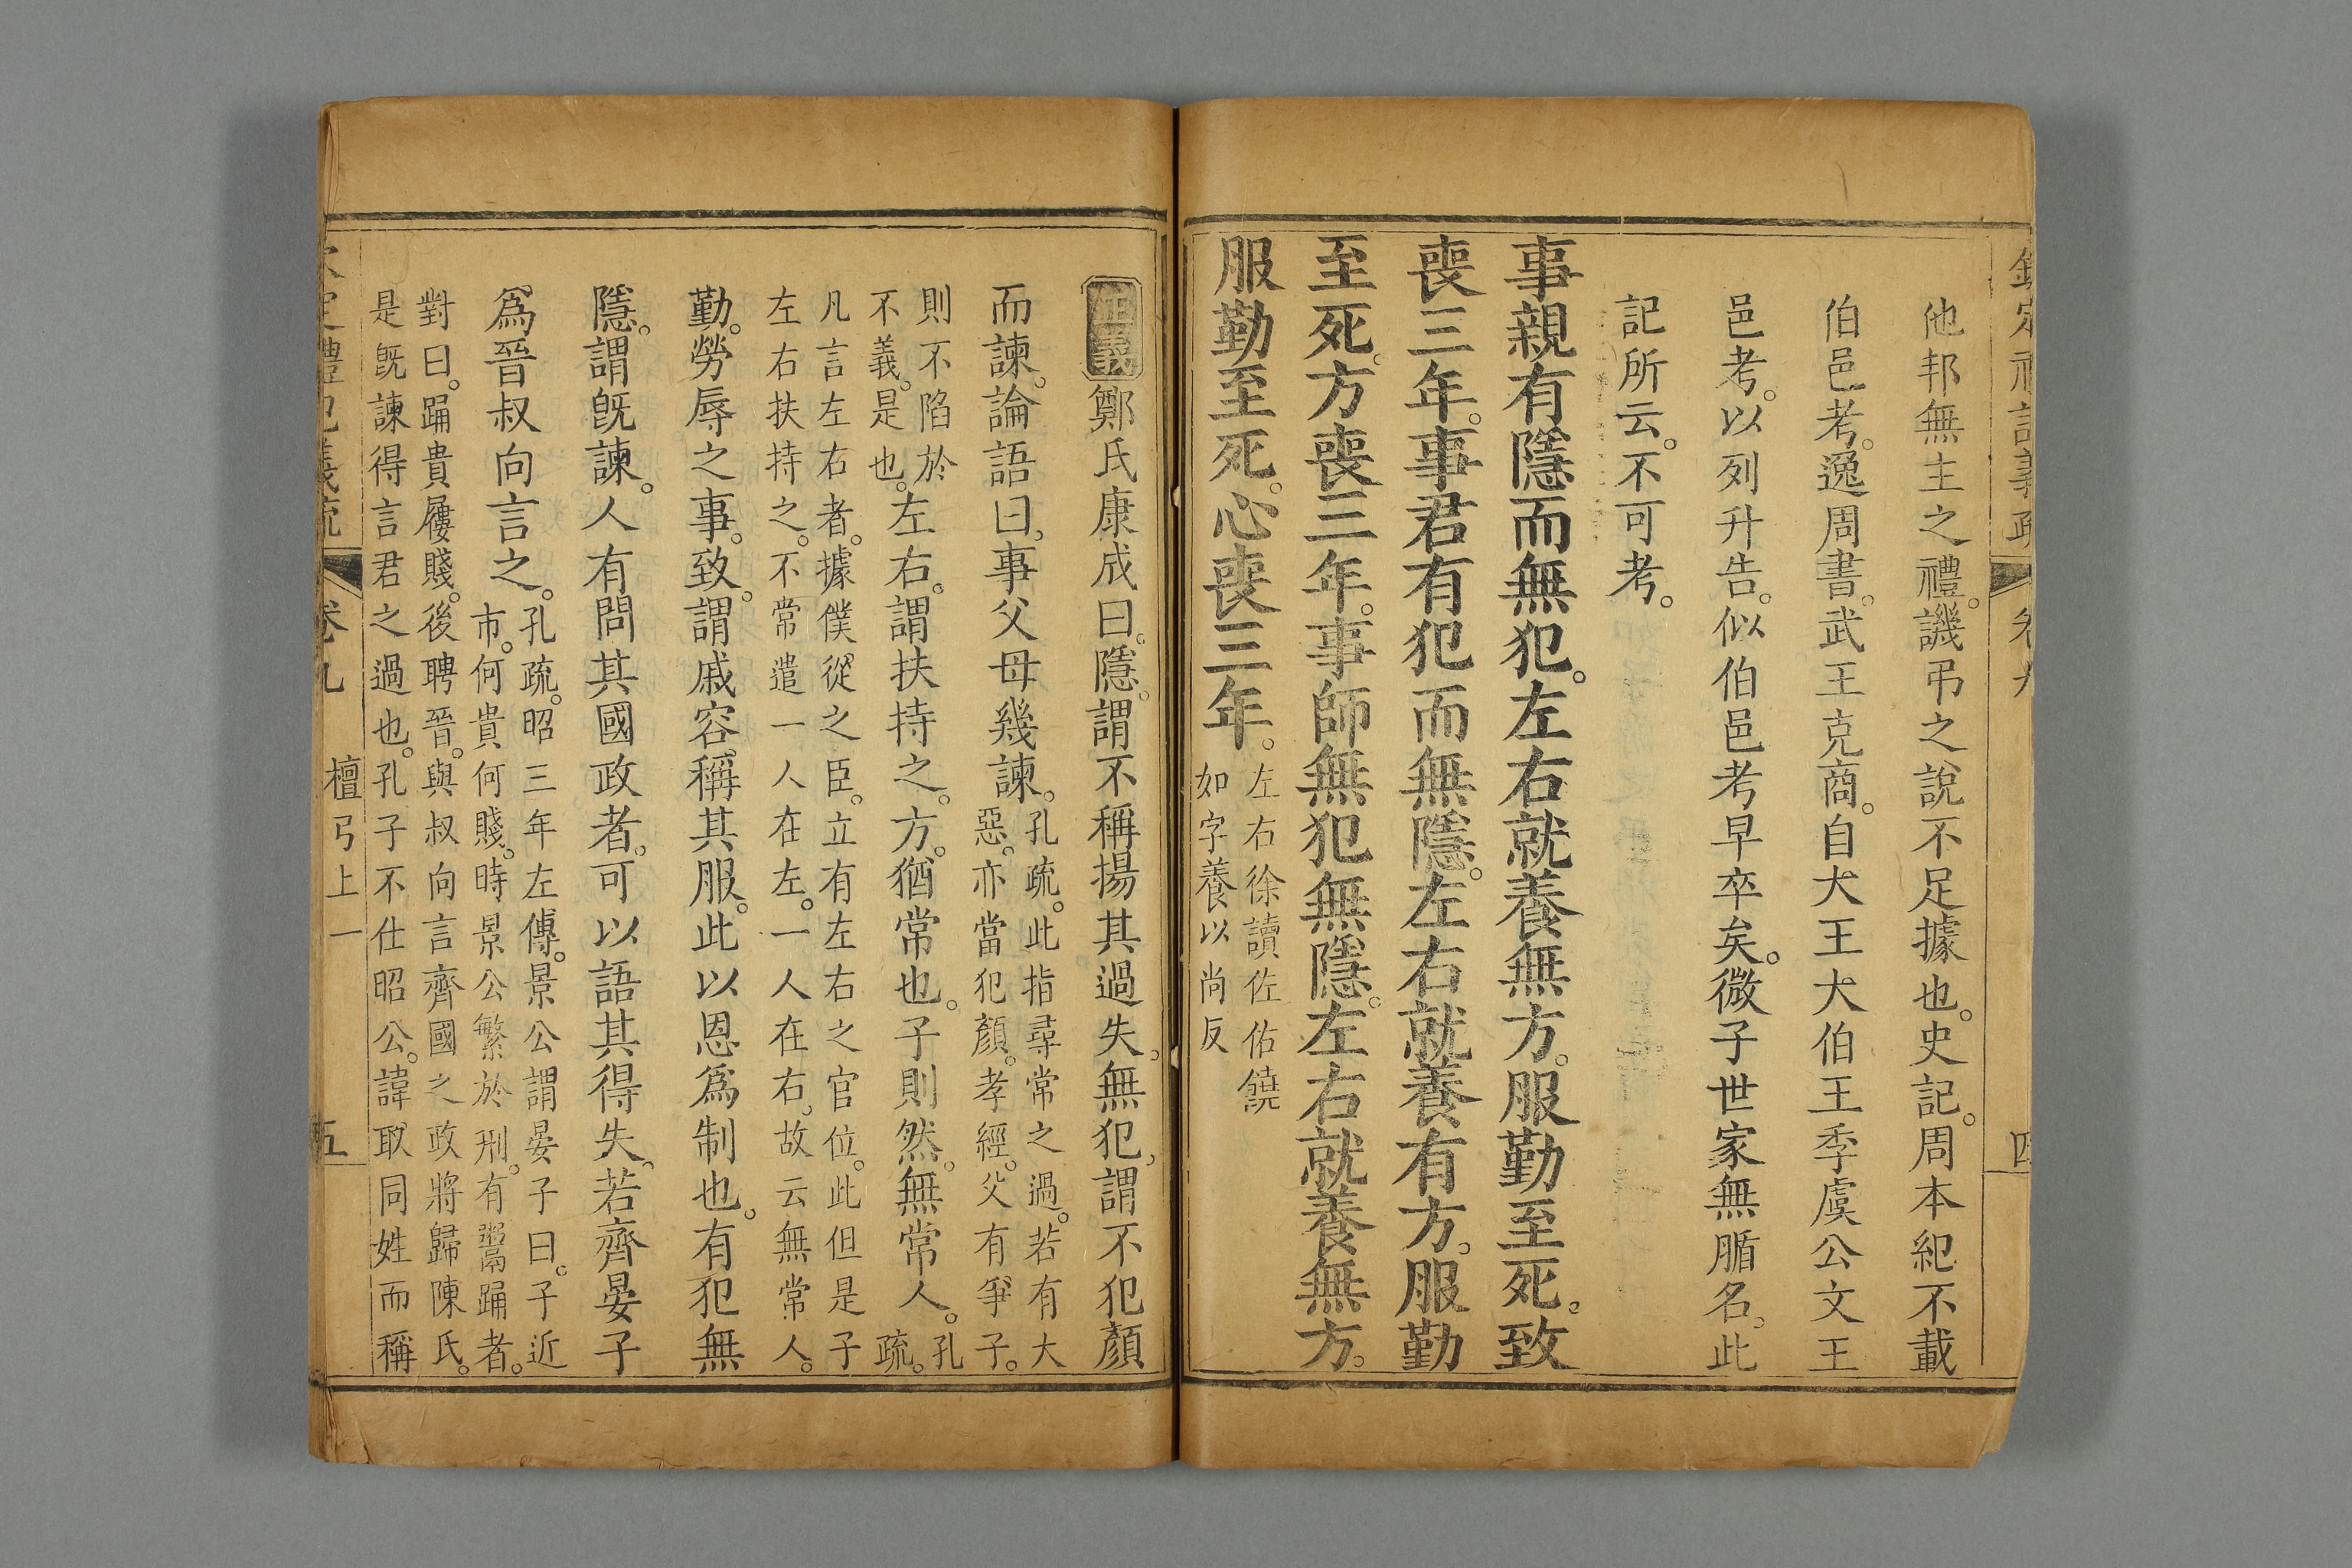 欽定禮記義疏 卷九 四
他邦無主之禮。譏弔之說不足據也。史記。周本紀不載
伯邑考。逸周書。武王克商。自大王大伯王季虞公文王
邑考。以列升告。似伯邑考早卒矣。微子世家無腯名。此
記所云。不可考。
事親有隱而無犯。左右就養無方。服勤至死。致
喪三年。事君有犯而無隱。左右就養有方。服勤
至死。方喪三年。事師無犯無隱。左右就養無方。
服勤至死。心喪三年。
左右徐讀佐佑饒
如字養以尚反
正義鄭氏康成曰。隱。謂不稱揚其過失。無犯。謂不犯顏
而諫。論語曰。事父母幾諫。
孔疏。此指尋常之過。若有大
惡。亦當犯顏。孝經。父有爭子。
則不陷於
不義。是也。
左右。謂扶持之。方。猶常也。子則然。無常人。
孔
疏。
凡言左右者。據僕從之臣。立有左右之官位。此但是子
左右扶持之。不常遣一人在左。一人在右。故云無常人。
勤。勞辱之事。致。謂戚容稱其服。此以恩爲制也。有犯無
隱。謂旣諫。人有問其國政者。可以語其得失。若齊晏子
爲晉叔向言之。
孔疏。昭三年左傳。景公謂晏子曰。子近
市。何貴何賤。時景公繁於刑。有鬻踊者。
對曰。踊貴屨賤。後聘晉。與叔向言齊國之政將歸陳氏。
是旣諫得言君之過也。孔子不仕昭公。諱取同姓而稱
欽定禮記義疏 卷九 檀弓上一 五